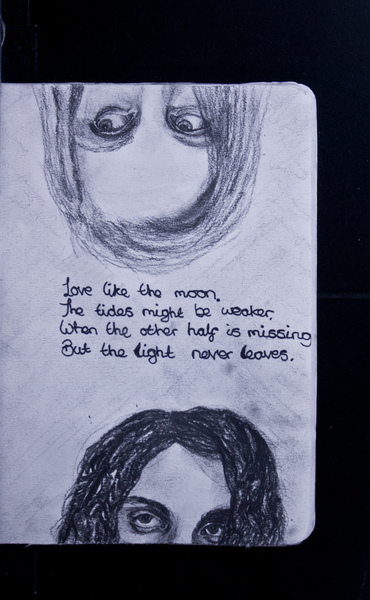 Love like the moon.
The tides might be weaker.
When the other half is missing
But the light never leaves.